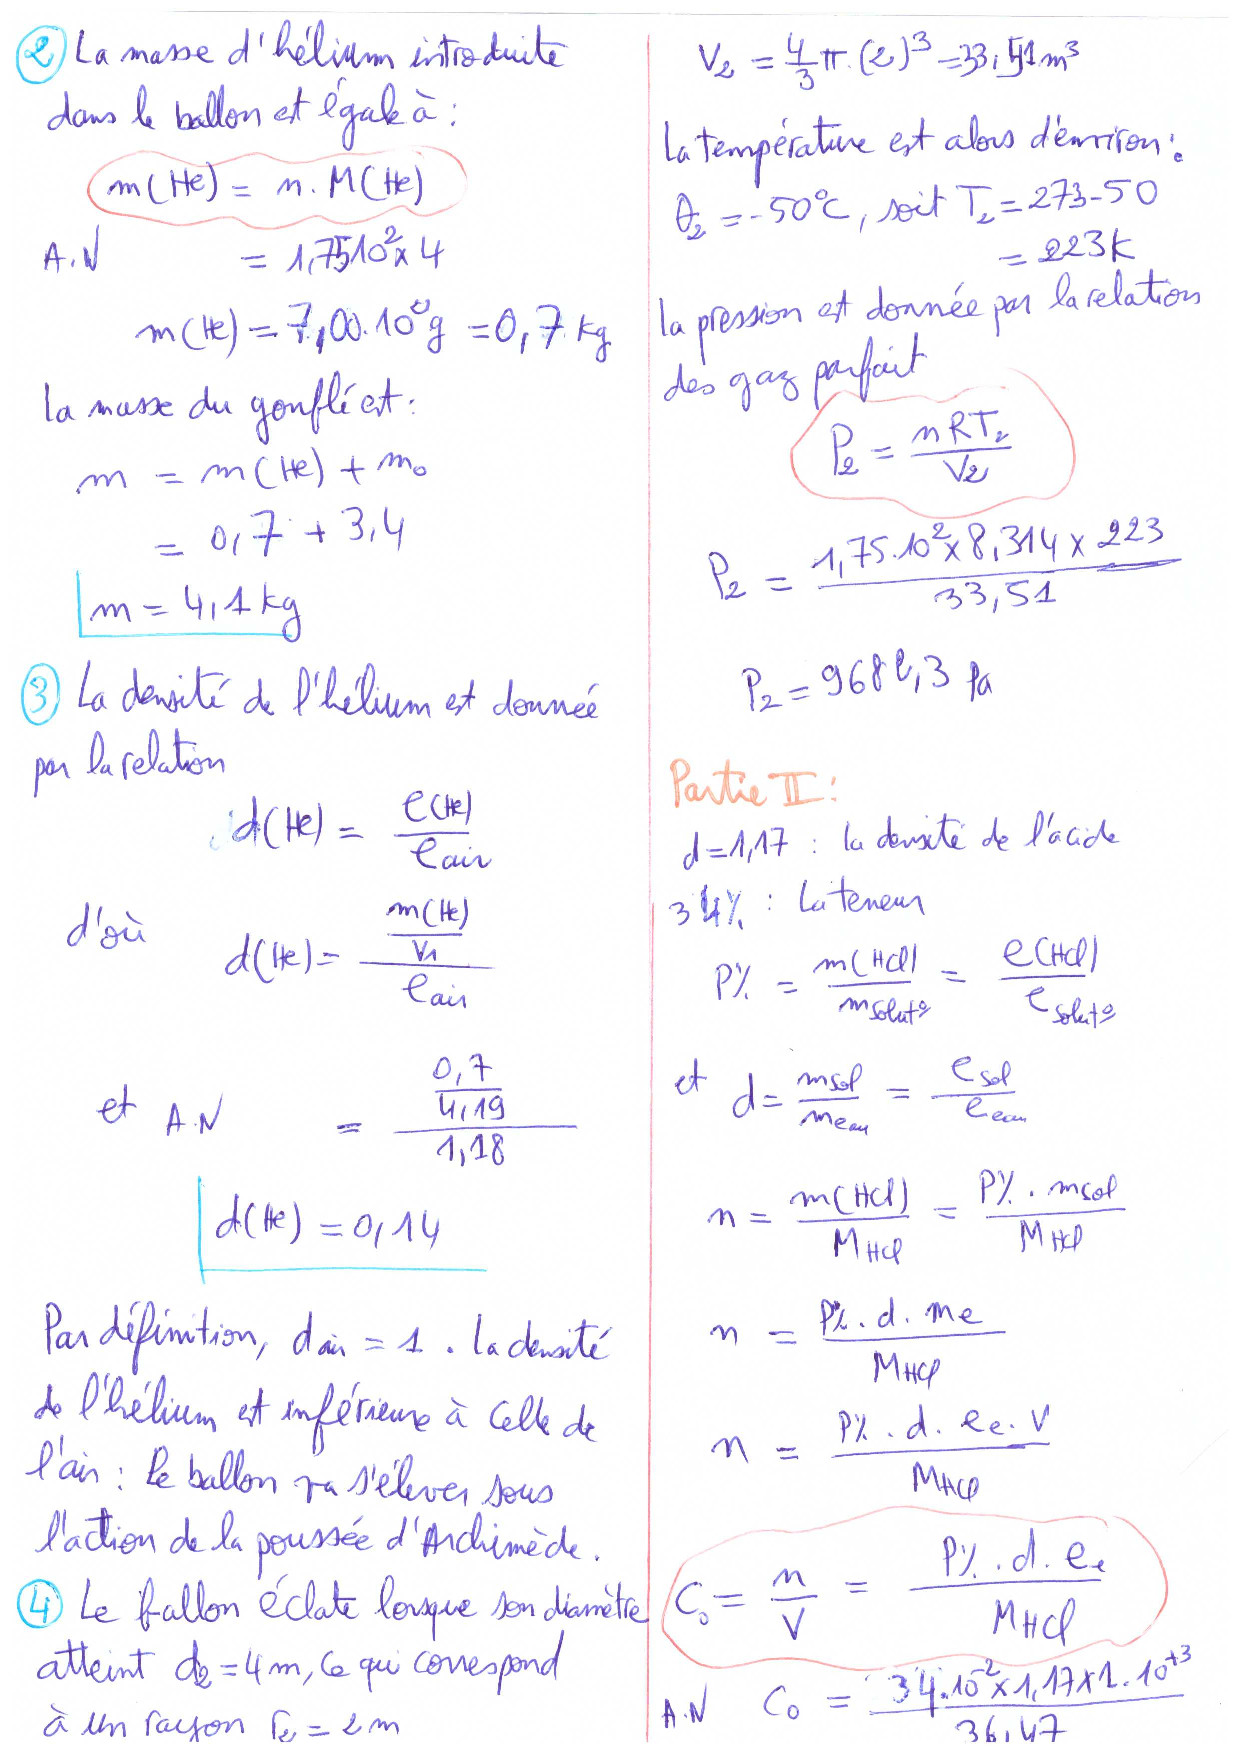 ② La masse d'hélium introduite
dans le ballon est égale à :
m(He) = n . M(He)
A.N = 1,75 10² x 4
m(He) = 7,00.10² g = 0,7 kg
la masse du gonflé est :
m = m(He) + m₀
= 0,7 + 3,4
m = 4,1 kg
③ La densité de l'hélium est donnée
par la relation
d(He) = ρ(He) / ρair
d'où d(He) = (m(He) / V₁) / ρair
et A.N = (0,7 / 4,19) / 1,18
d(He) = 0,14
Par définition, dair = 1 . la densité
de l'hélium est inférieure à celle de
l'air : le ballon va s'élever sous
l'action de la poussée d'Archimède.
④ Le ballon éclate lorsque son diamètre
atteint d₂ = 4 m, ce qui correspond
à un rayon r₂ = 2 m
V₂ = 4/3 π . (2)³ = 33,51 m³
la température est alors d'environ :
θ₂ = -50°C, soit T₂ = 273-50
= 223 K
la pression est donnée par la relation
des gaz parfait
P₂ = nRT₂ / V₂
P₂ = 1,75.10² x 8,314 x 223 / 33,51
P₂ = 9682,3 Pa
Partie II :
d = 1,17 : la densité de l'acide
34% : la teneur
P% = m(HCl) / msolut° = ρ(HCl) / ρsolut°
et d = msol / meau = ρsol / ρeau
n = m(HCl) / MHCl = P% . msol / MHCl
n = P% . d . me / MHCl
n = P% . d . ρe . V / MHCl
C₀ = n / V = P% . d . ρe / MHCl
A.N C₀ = 34.10⁻² x 1,17 x 1.10⁺³ / 36,47